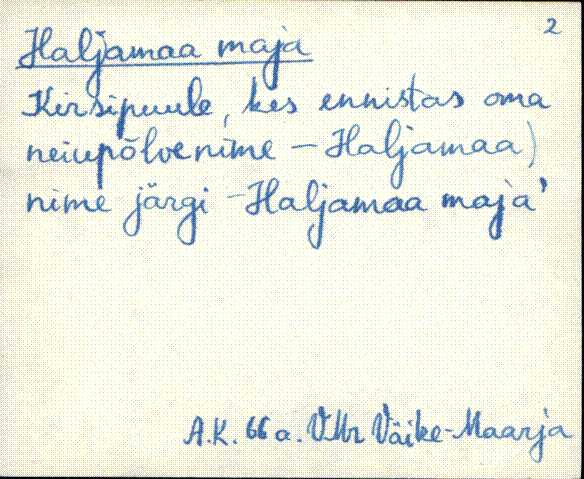 2
Haljamaa maja
Kirsipuule, kes ennistas oma
neiupõlvenime – Haljamaa)
nime järgi – Haljamaa maja'
A.K. 66 a. VMr Väike-Maarja